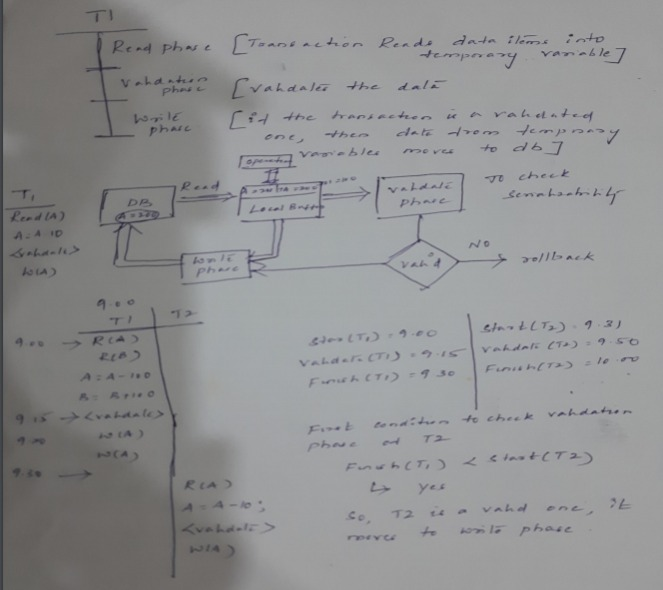 T1
Read phase [Transaction Reads data items into
temporary variable]
Validation
phase [validates the data
Write
phase [if the transaction is a validated
one, then data from temporary
variables moves to db]
T1
Read(A)
A=A-10
<validate>
W(A)
DB
A=200
Read
Local Buffer
validate
phase
To check
Serializability
Write
phase
valid
NO
rollback
9.00
T1 T2
9.00 → R(A)
R(B)
A = A-100
B = B+100
9.15 → <validate>
W(A)
W(A)
R(A)
A = A-10;
<validate>
W(A)
Start(T1) = 9.00
validate(T1) = 9.15
Finish(T1) = 9.30
Start(T2) = 9.31
validate(T2) = 9.50
Finish(T2) = 10.00
First condition to check validation
phase of T2
Finish(T1) < Start(T2)
↳ yes
So, T2 is a valid one, it
moves to write phase.